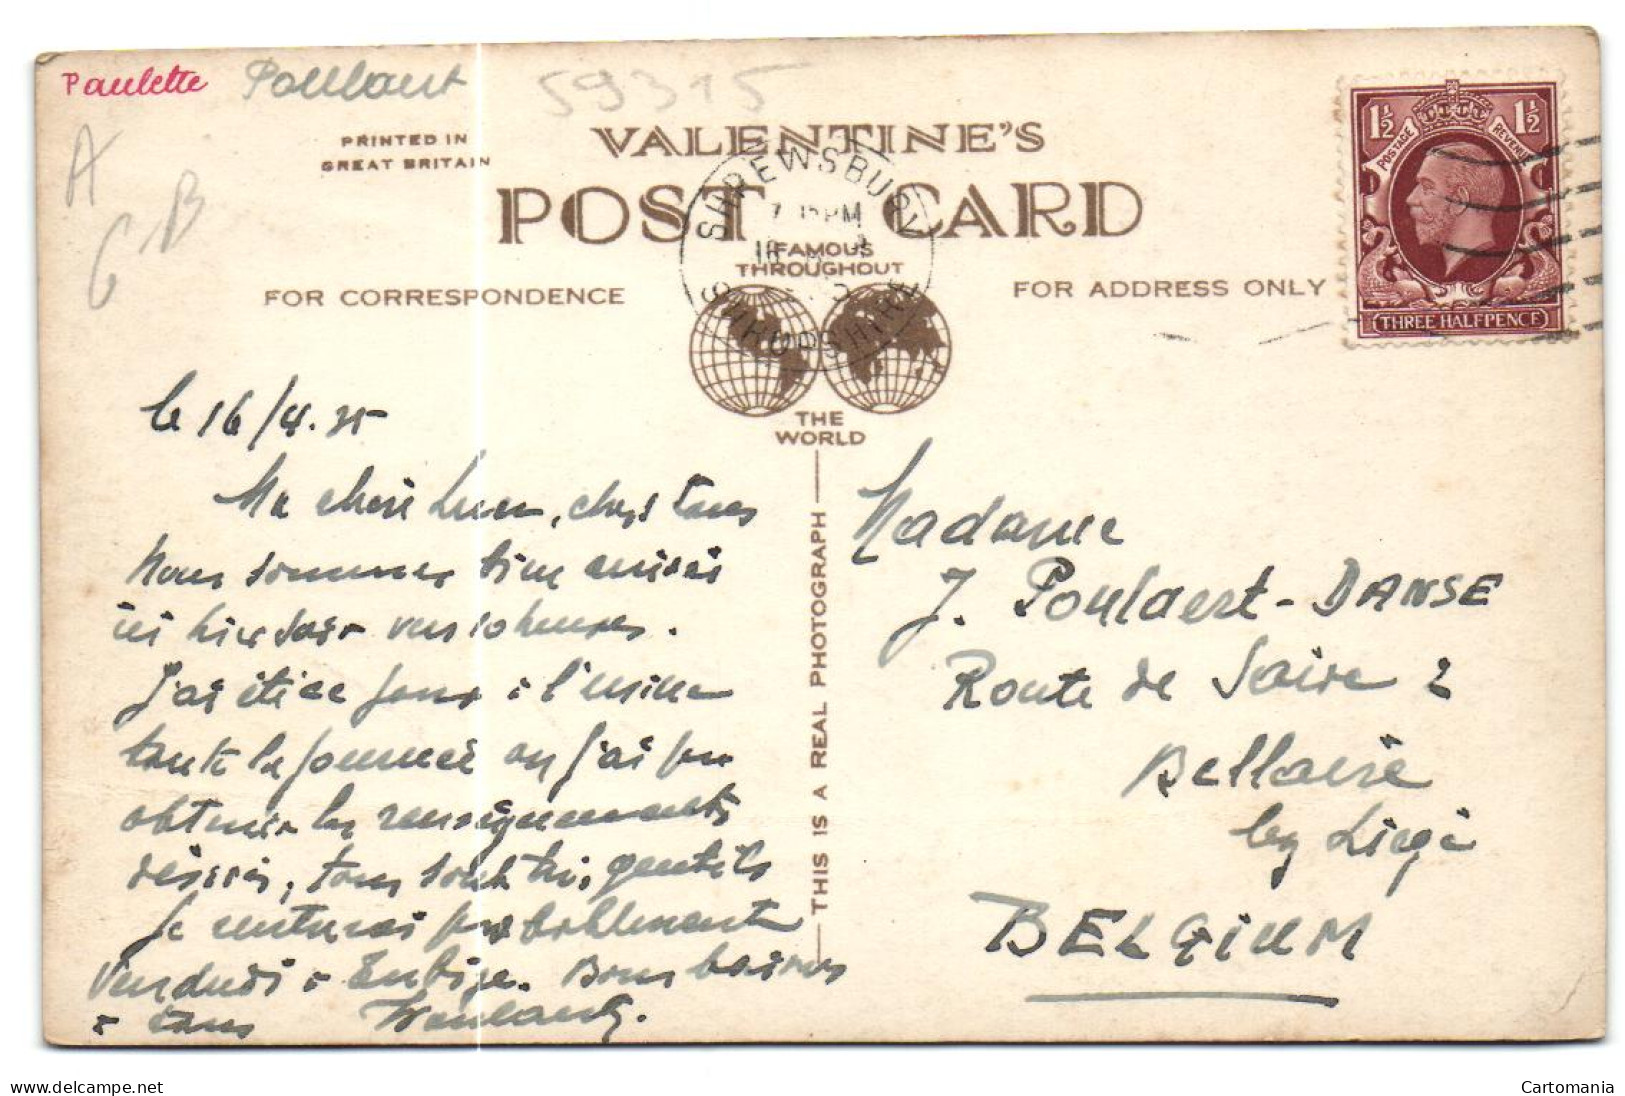 Paulette Poulaert
59315
A
GB
PRINTED IN
GREAT BRITAIN
VALENTINE'S
POST CARD
FAMOUS
THROUGHOUT
THE
WORLD
FOR CORRESPONDENCE
FOR ADDRESS ONLY
SHREWSBURY
SHROPSHIRE
1½ 1½
POSTAGE REVENUE
THREE HALFPENCE
THIS IS A REAL PHOTOGRAPH
le 16/4.35
Ma chère, chers tous
Nous sommes bien arrivés
ici hier soir vers 10 heures.
J'ai été ce jour à l'usine
toute la journée où j'ai pu
obtenir les renseignements
désirés, tous sont très gentils
Je rentrerai probablement
Vendredi à. Bons baisers
à tous
Madame
J. Poulaert-DANSE
Route de 2
Bellaire
by Liège
BELGIUM
Cartomania
www.delcampe.net